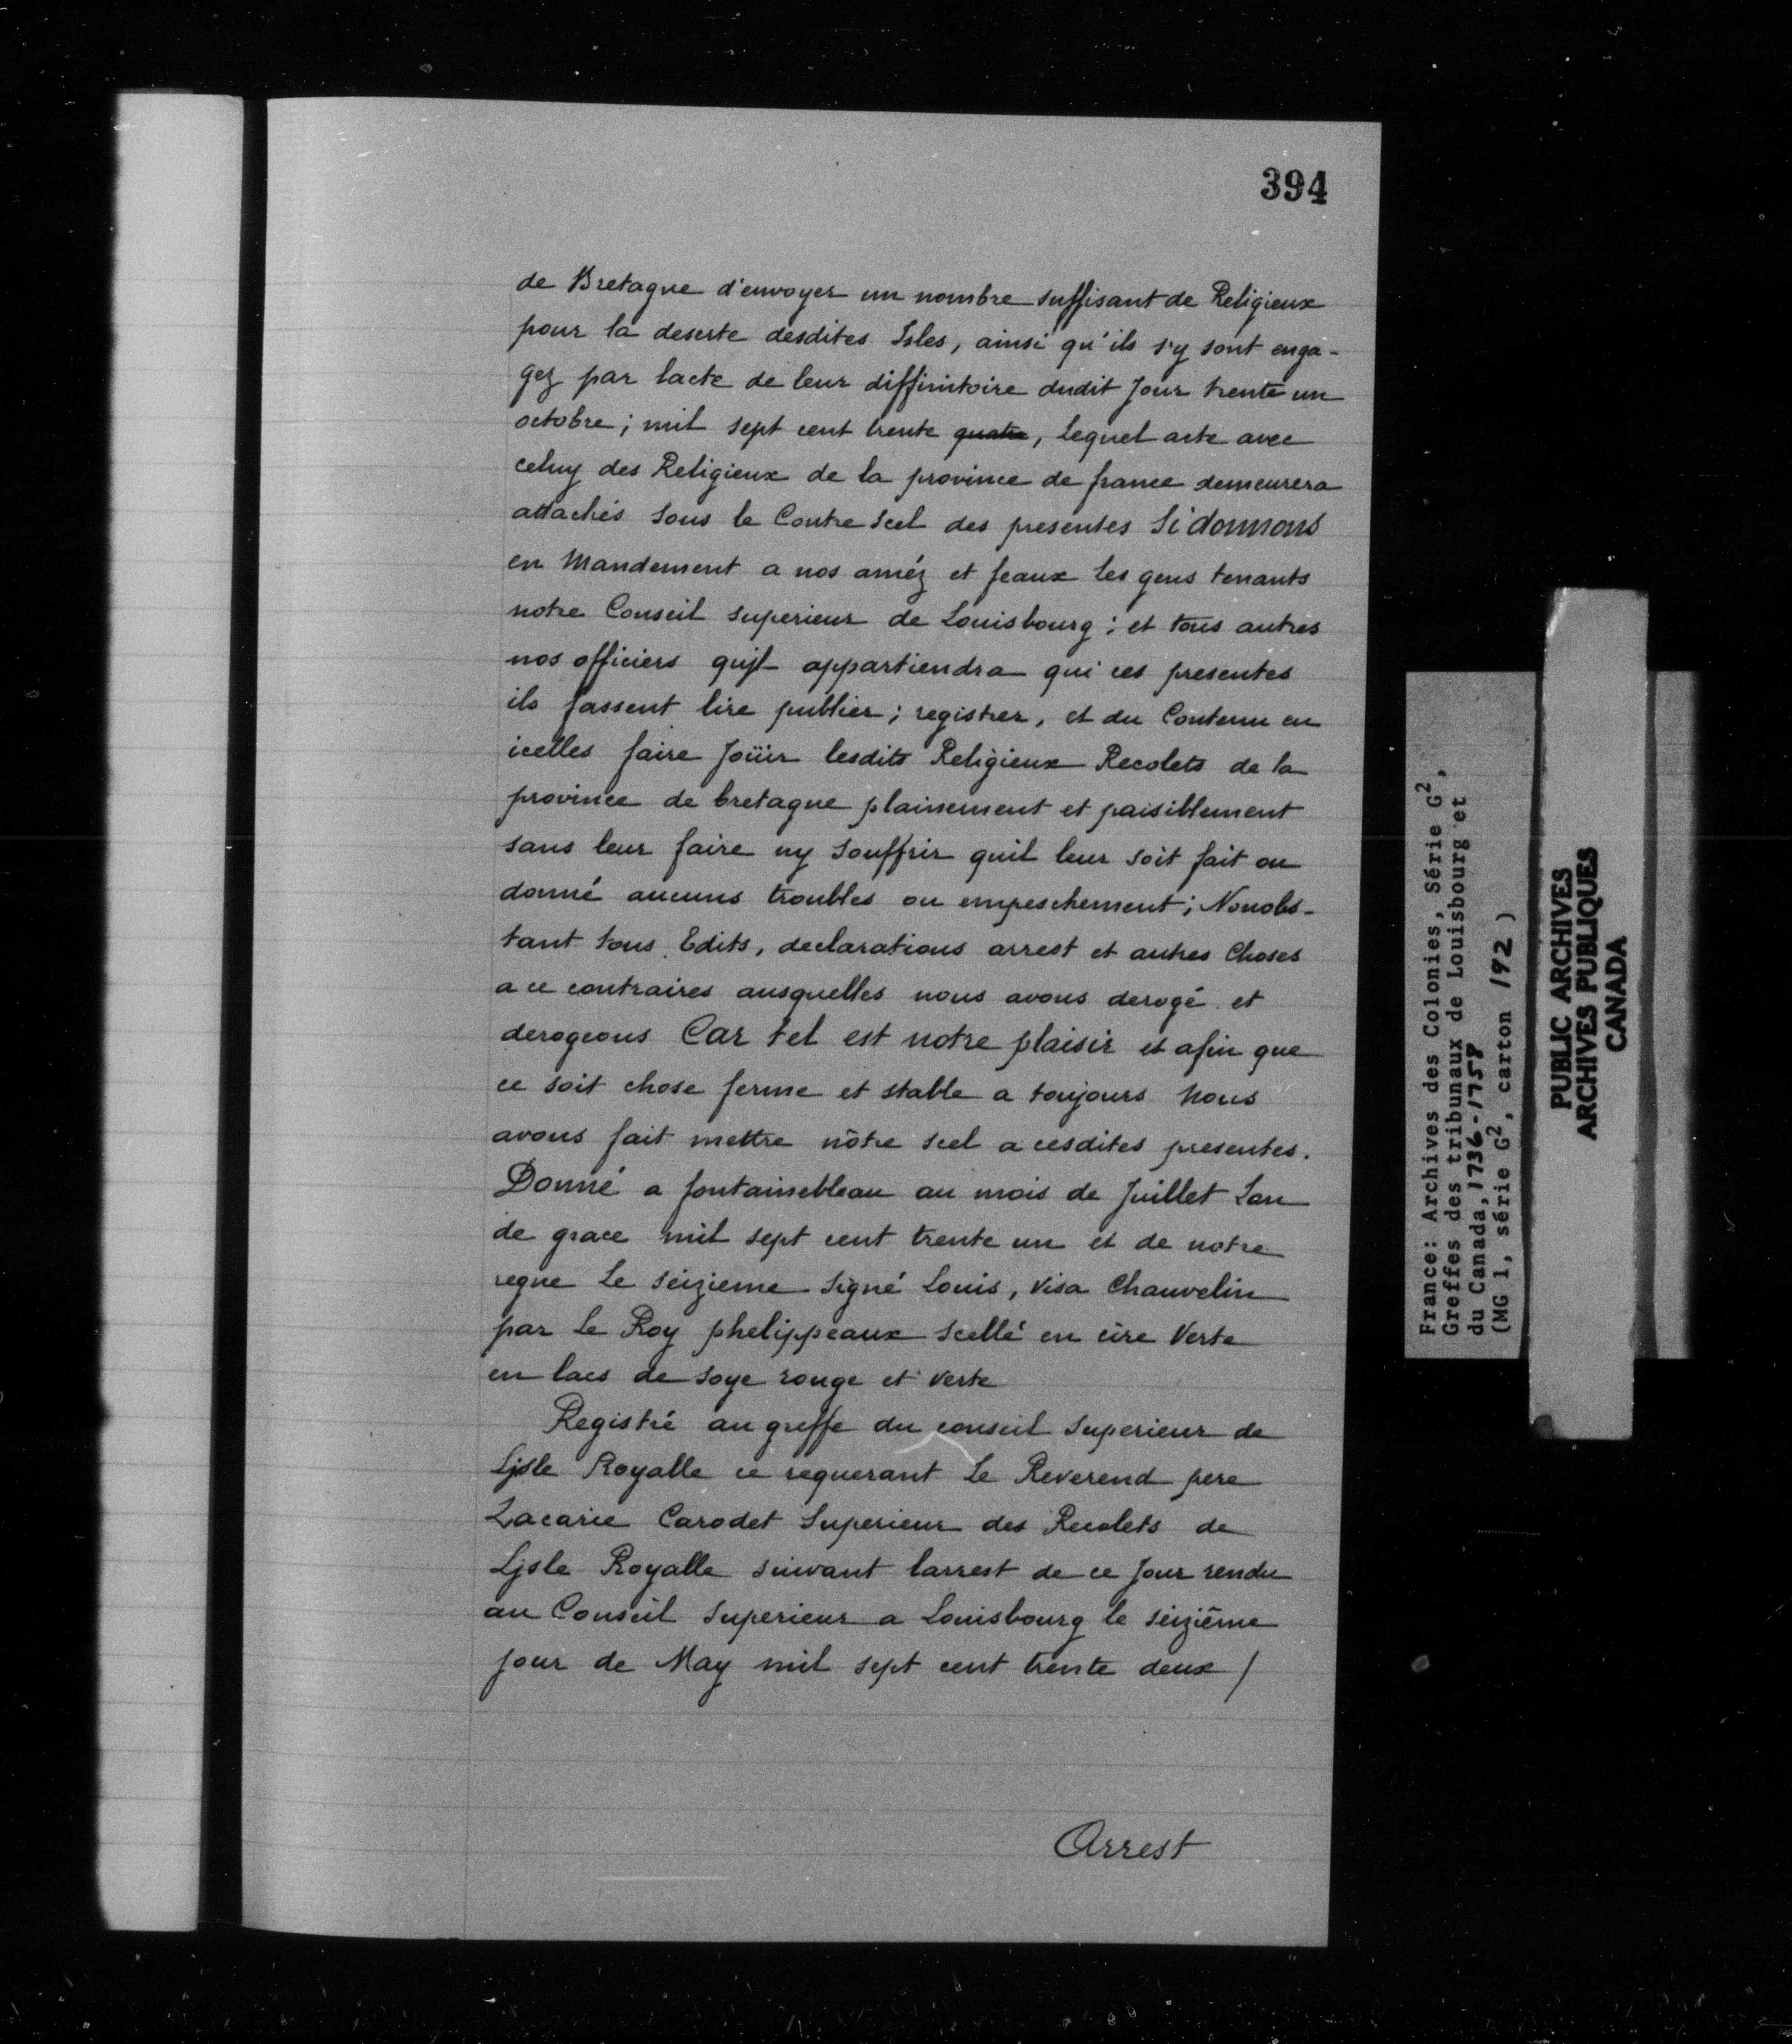 394
de Bretagne d'envoyer un nombre suffisant de Religieux
pour la deserte desdites Isles, ainsi qu'ils s'y sont enga-
gez par lacte de leur diffinitoire dudit Jour trente un
octobre; mil sept cent trente quatre, lequel acte avec
celuy des Religieux de la province de france demeurera
attachés sous le Contre scel des presentes Si donnons
en Mandement a nos améz et feaux les gens tenants
notre Conseil superieur de Louisbourg; et tous autres
nos officiers qujl appartiendra qui ces presentes
ils fassent lire publier; registrer, et du Contenu en
icelles faire Joüir lesdits Religieux Recolets de la
province de bretagne plainement et paisiblement
sans leur faire ny souffrir quil leur soit fait ou
donné aucuns troubles ou empeschement; Nonobs-
tant tous Edits, declarations arrest et autres Choses
a ce contraires ausquelles nous avons derogé et
derogeons Car tel est notre plaisir et afin que
ce soit chose ferme et stable a toujours Nous
avons fait mettre nôtre scel a cesdites presentes.
Donné a fontainebleau au mois de Juillet Lan
de grace mil sept cent trente un et de notre
regne Le seizieme Signé Louis, Visa Chauvelin
par Le Roy phelippeaux Scellé en cire Verte
en lacs de soye rouge et verte
Registré au greffe du conseil Superieur de
Ljsle Royalle ce requerant Le Reverend pere
Zacarie Carodet Superieur des Recolets de
Ljsle Royalle suivant larrest de ce Jour rendu
au Conseil Superieur a Louisbourg le seizième
jour de May mil sept cent trente deux /
Arrest
France: Archives des Colonies, Série G²,
Greffes des tribunaux de Louisbourg et
du Canada, 1736-1758
(MG 1, série G², carton 192)
PUBLIC ARCHIVES
ARCHIVES PUBLIQUES
CANADA